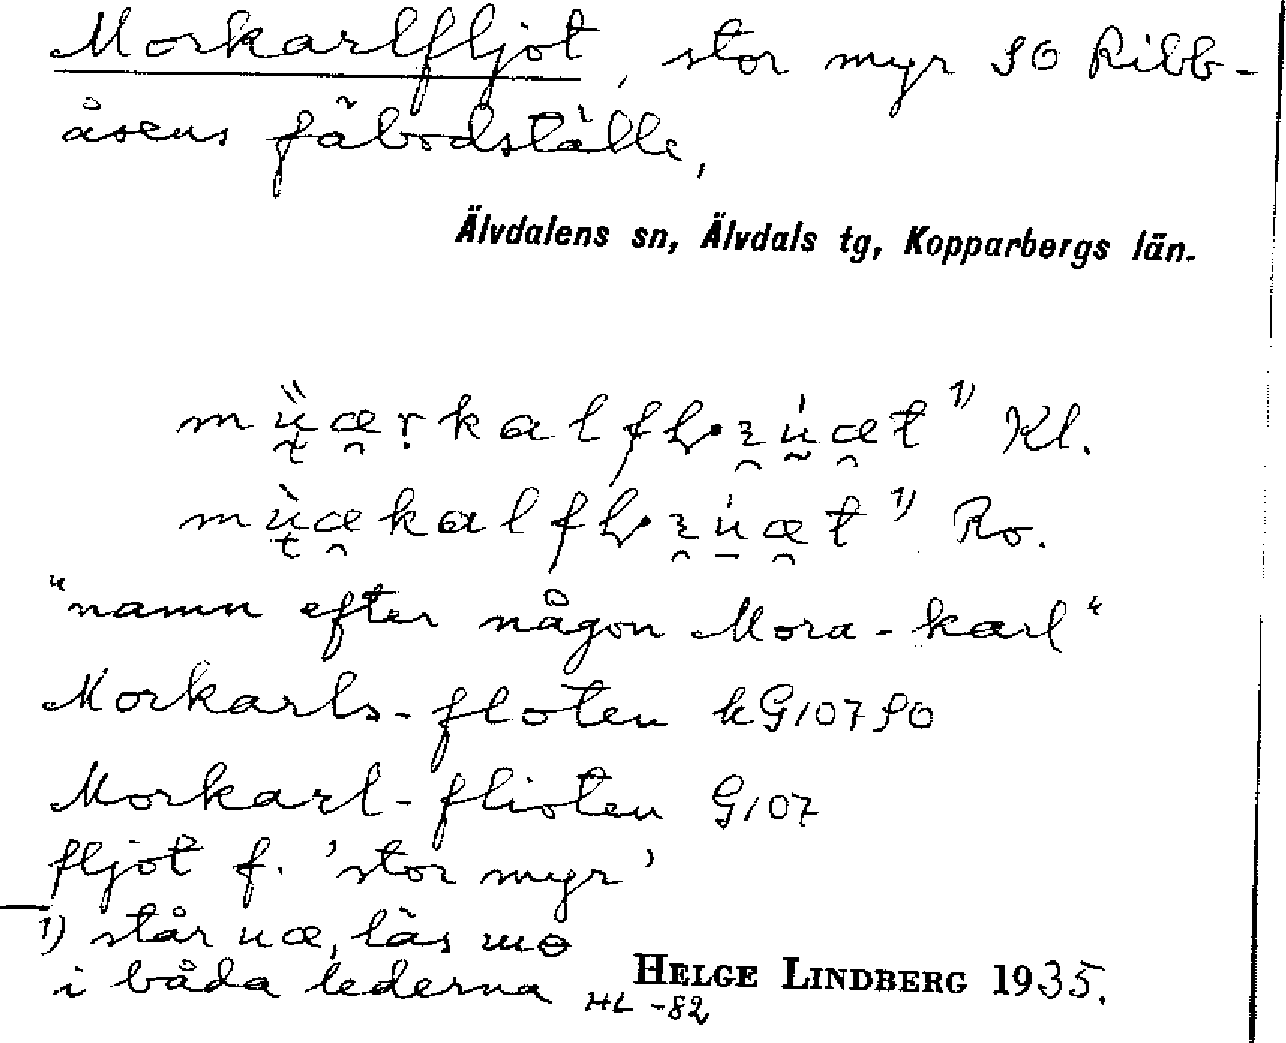 Morkarlfljot, stor myr SO Ribb-
åsens fäbodställe,
Älvdalens sn, Älvdals tg, Kopparbergs län.
Kl.
Ro.
"namn efter någon Mora-karl"
Morkarls-floten kG107SO
Morkarl-flioten G107
fljot f. 'stor myr'
1) står uæ, läs
i båda lederna HL -82
HELGE LINDBERG 1935.